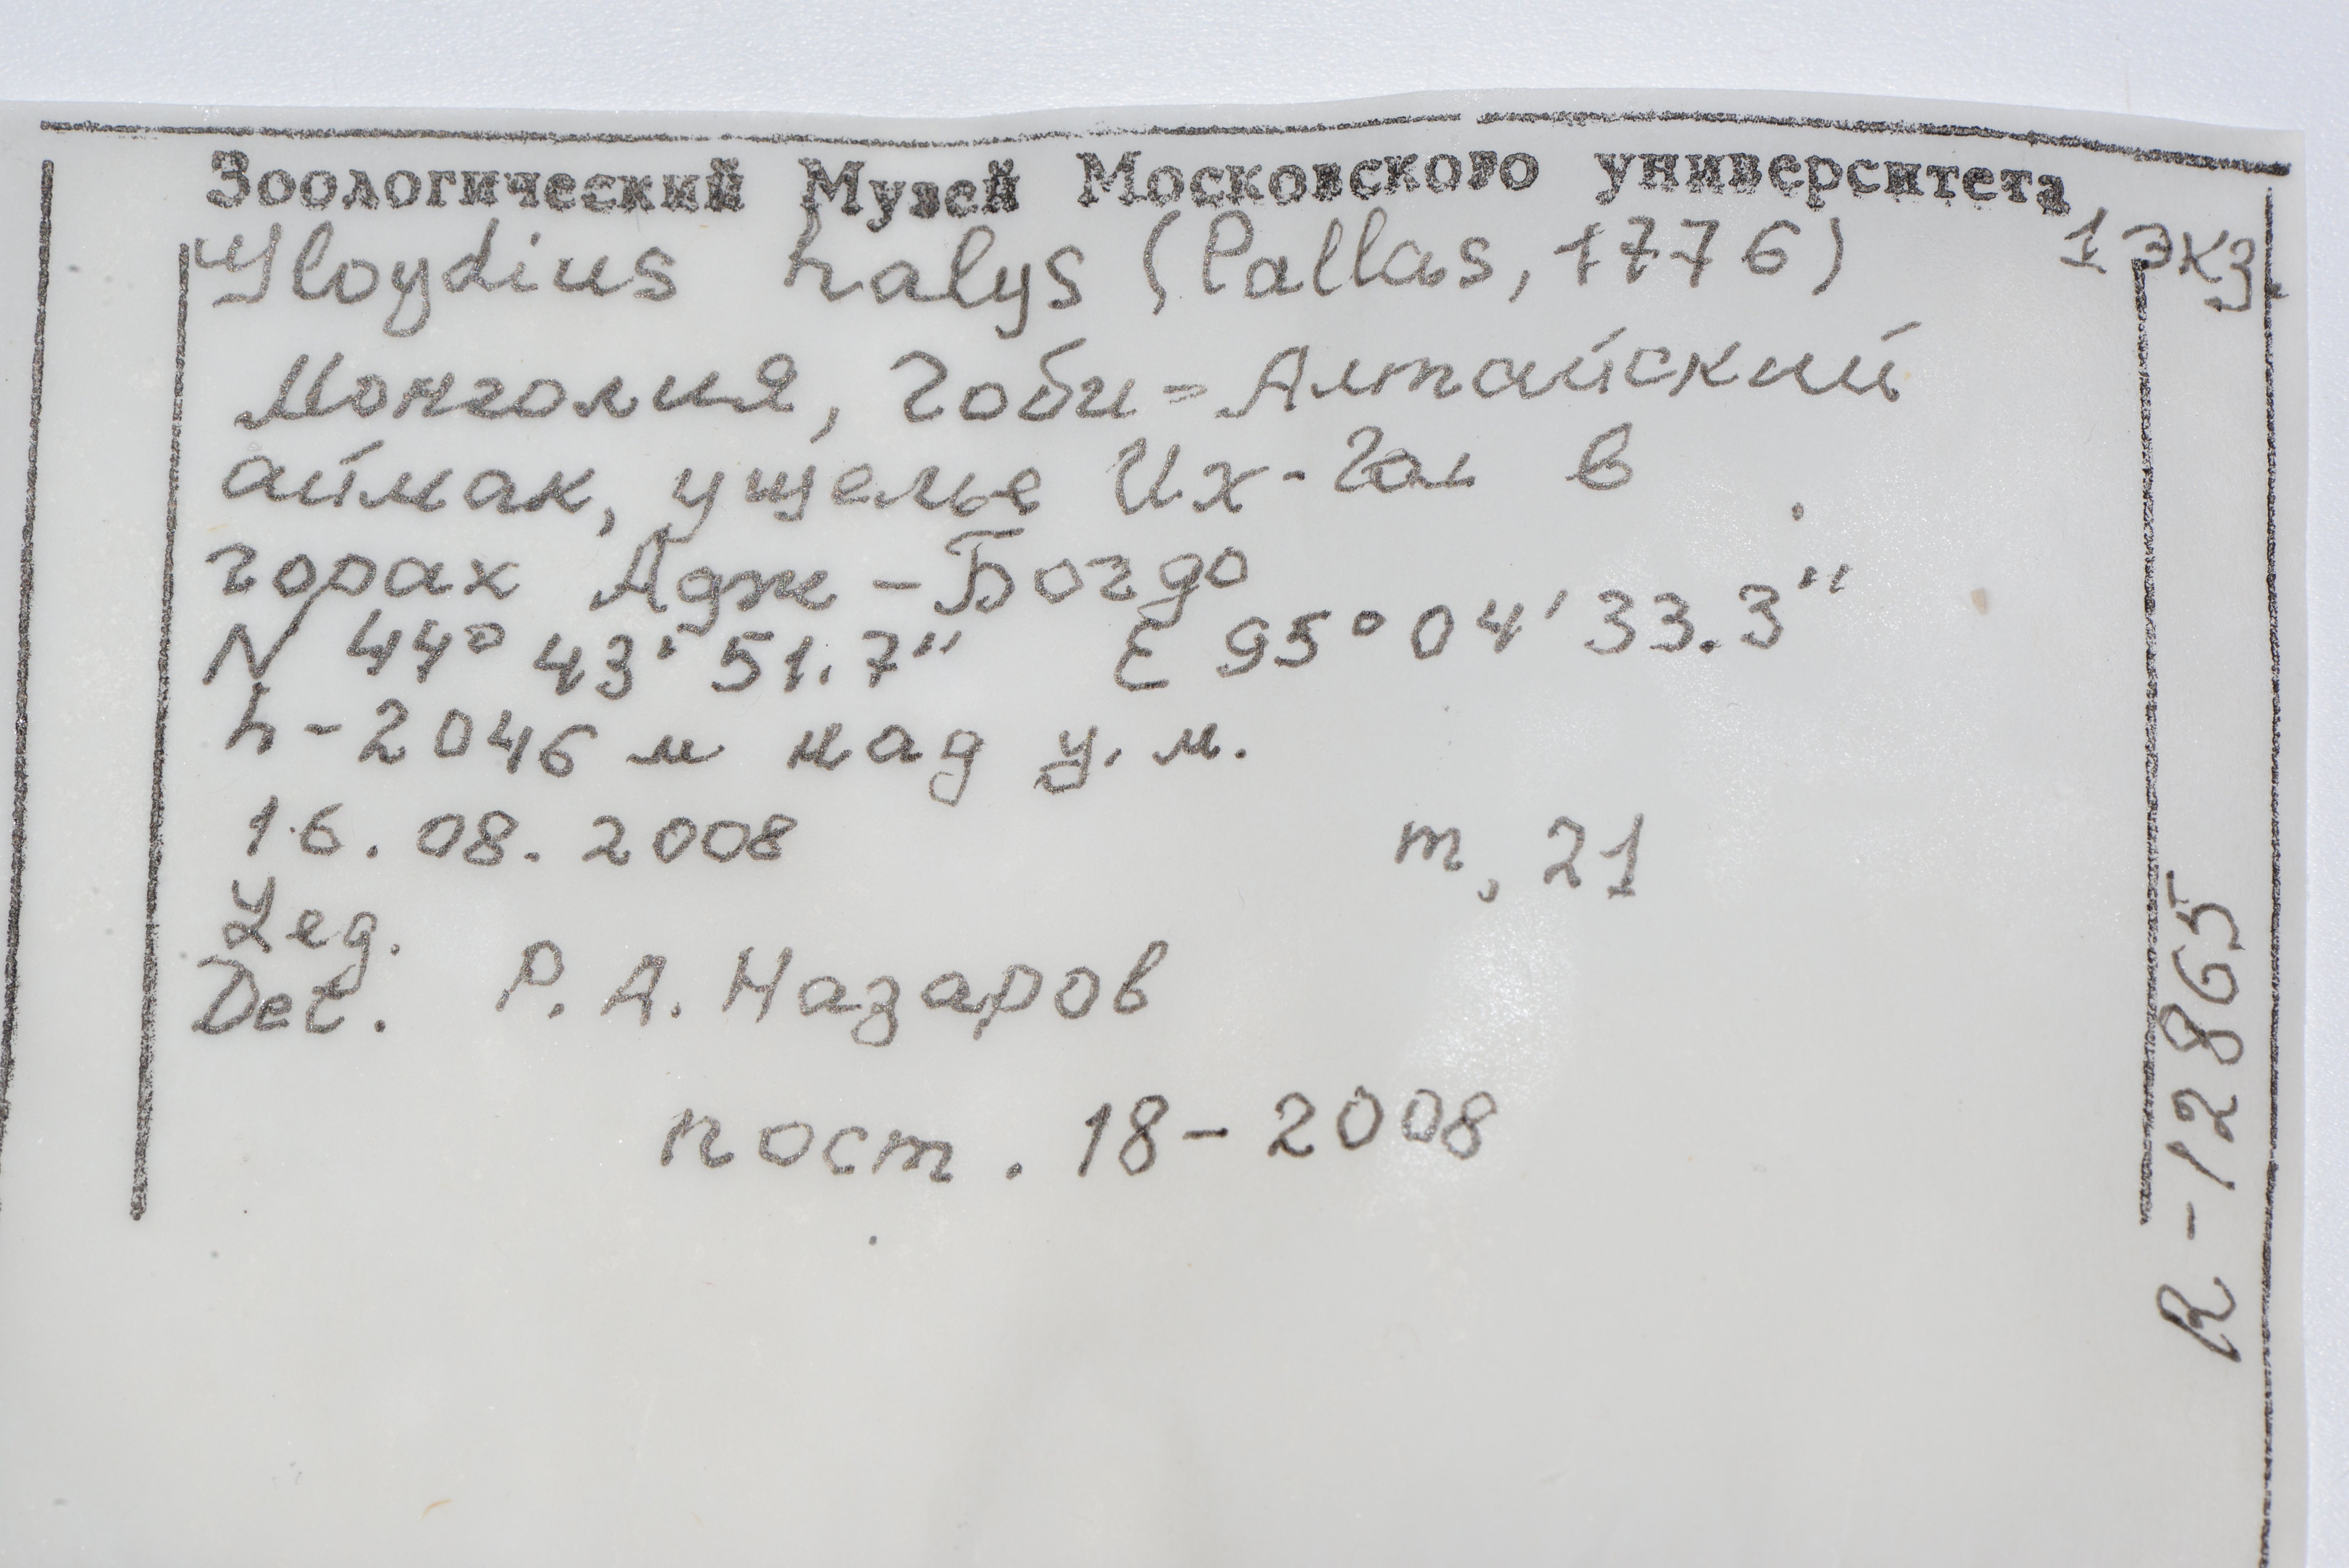 Зоологический Музей Московского университета
Gloydius halys (Pallas, 1776) 1 экз.
Монголия, Гоби-Алтайский
аймак, ущелье Их-Гол в
горах Адж-Богдо
N 44° 43' 51.7" E 95° 04' 33.3"
h - 2046 м над у. м.
16. 08. 2008 m, 21
Leg.
Det. Р. А. Назаров
пост. 18 - 2008
R - 12865